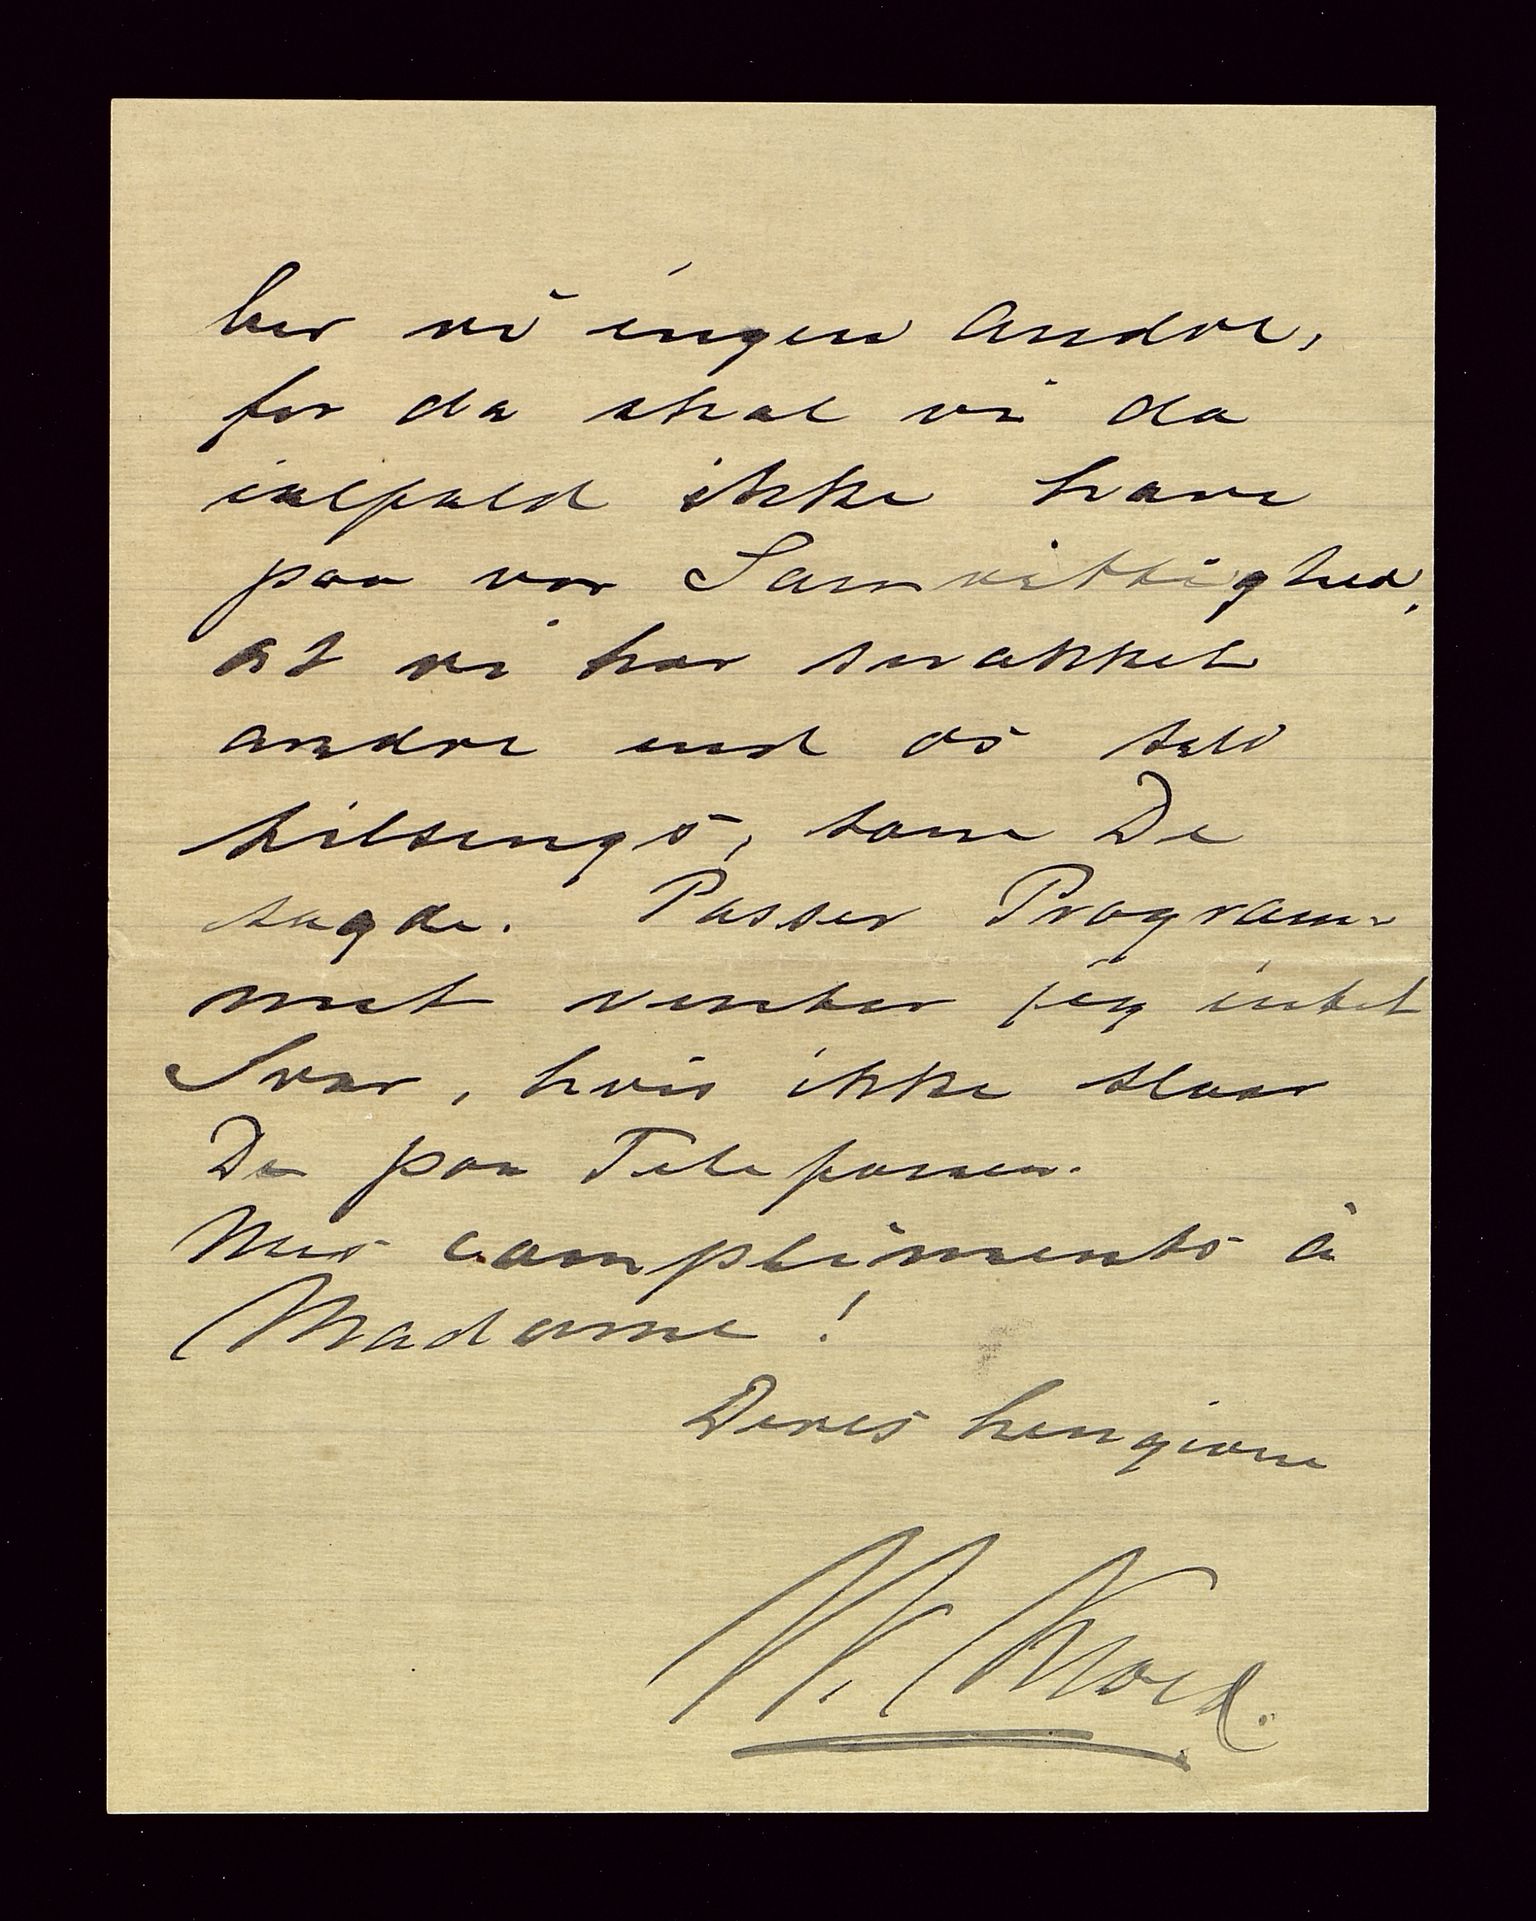 ber vi ingen Andre,
for da skal vi da
ialfald ikke have
paa vor Samvittighed,
at vi har snakket
andre end os selv
hilsengs, som De
sagde. Passer Program-
met venter jeg intet
Svar, hvis ikke slaar
De paa Telefonen.
Mes compliments à
Madame!
Deres hengivne